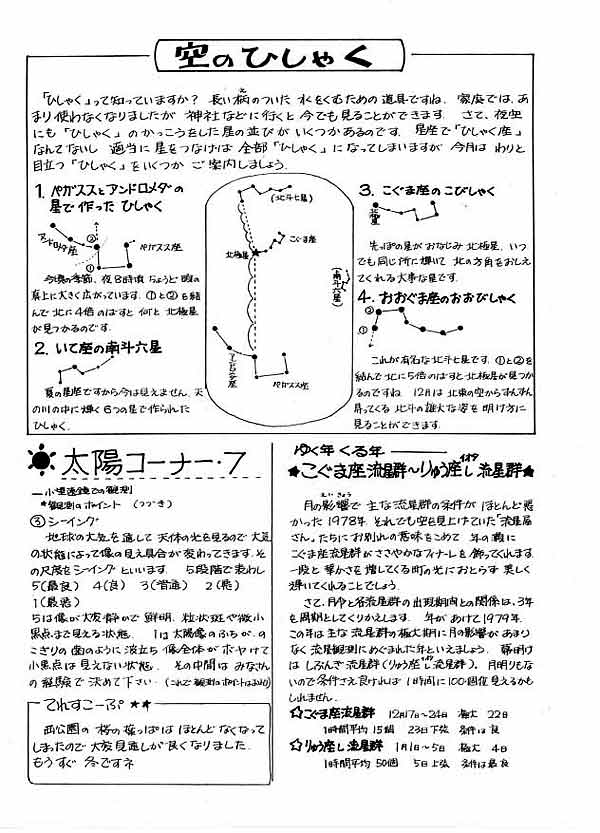 空のひしゃく
「ひしゃく」って知っていますか? 長い柄のついた 水をくむための道具ですね. 家庭では、あ
え
まり使わなくなりましたが 神社などに行くと 今でも見ることができます. さて、夜空
にも「ひしゃく」の かっこうをした星の並びが いくつかあるのです. 星座で「ひしゃく座」
なんてないし 適当に 星をつなげば 全部「ひしゃく」になってしまいますが 今月は わりと
目立つ「ひしゃく」を いくつか ご案内しましょう.
1. ペガススとアンドロメダの
星で作った ひしゃく
アンドロメダ座
②
①
ペガスス座
今頃の季節、夜8時頃 ちょうど 頭の
真上に大きく広がっています. ①と②を結
んで 北に4倍のばすと 何と 北極星
が見つかるのです.
2. いて座の南斗六星
夏の星座ですから今は見えません. 天
の川の中に輝く 6つの星で作られた
ひしゃく.
(北斗七星)
こぐま座
北極星
(南斗六星)
アンドロメダ座
ペガスス座
3. こぐま座の こびしゃく
北極星
先っぽの星が おなじみ 北極星. いつ
でも同じ所に輝いて 北の方角をおしえ
てくれる 大事な星です.
4. おおぐま座のおおびしゃく
②
①
これが有名な北斗七星です. ①と②を
結んで北に5倍のばすと北極星が見つか
るのですね. 12月は 北東の空からずんずん
昇ってくる 北斗の雄大な姿を 明け方に
見ることができます.
太陽コーナー・7
—小望遠鏡での観測
*観測のポイント (つづき)
③シーイング
地球の大気を通して 天体の光を見るので 大気
の状態によって像の見え具合が変わってきます. そ
の尺度をシーイングといいます. 5段階で表わし
5(最良) 4(良) 3(普通) 2(悪)
1(最悪)
5は像が大変静かで 鮮明. 粒状斑や微小
黒点まで見える状態. 1は太陽像のふちが、の
こぎりの歯のように 波立ち 像全体がボヤけて
小黒点は見えない状態. その中間は みなさん
の経験で 決めて下さい. (これで 観測のポイントはおわり)
てれすこーぷ ★★
西公園の 桜の葉っぱは ほとんどなくなって
しまったので 大変見通しが良くなりました.
もうすぐ 冬ですネ
ゆく年 くる年
★こぐま座流星群〜りゅう座ι流星群★
イオタ
えいきょう
月の影響で 主な流星群の条件が ほとんど悪
かった 1978年. それでも空を見上げていた「流星屋
さん」たちに お別れの意味をこめて 年の瀬に
こぐま座流星群が ささやかなフィナーレを 飾ってくれます.
一段と 華かさを 増してくる町の光におとらず 美しく
輝いてくれることでしょう.
さて、月令と各流星群の出現期間との関係は、3年
を周期としてくりかえします. 年があけて1979年.
この年は主な 流星群の極大期に月の影響があまり
なく 流星観測にめぐまれた年といえましょう. 幕明け
は しぶんぎ流星群(りゅう座ι流星群). 月明りもな
いので 条件さえ良ければ 1時間に100個位見えるかも
しれません.
☆こぐま座流星群 12月17〜24日 極大 22日
1時間平均 15個 23日下弦 条件は良
☆りゅう座ι流星群 1月1日〜5日 極大 4日
1時間平均 50個 5日上弦 条件は最良